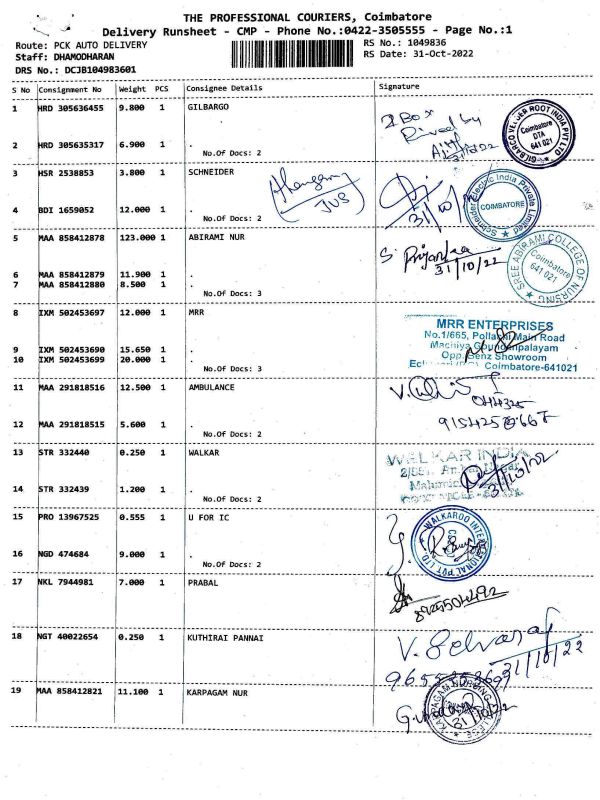 THE PROFESSIONAL COURIERS, Coimbatore
Delivery Runsheet - CMP - Phone No.:0422-3505555 - Page No.:1
Route: PCK AUTO DELIVERY
RS No.: 1049836
Staff: DHAMODHARAN
RS Date: 31-Oct-2022
DRS No.: DCJB104983601
S No Consignment No Weight PCS Consignee Details Signature
1 HRD 305636455 9.800 1 GILBARGO
2 Box
GILBARCO VEEDER ROOT INDIA PVT LTD
Coimbatore
DTA
641 021
2 HRD 305635317 6.900 1 .
No.Of Docs: 2
3 HSR 2538853 3.800 1 SCHNEIDER
31/10/
Schneider Electric India Private Limited
COIMBATORE
4 BDI 1659052 12.000 1 .
No.Of Docs: 2
5 MAA 858412878 123.000 1 ABIRAMI NUR
S. Priyanka
31/10/22
SREE ABIRAMI COLLEGE OF NURSING
Coimbatore
641 021
6 MAA 858412879 11.900 1 .
7 MAA 858412880 8.500 1 .
No.Of Docs: 3
8 IXM 502453697 12.000 1 MRR
MRR ENTERPRISES
No.1/665, Pollachi Main Road
Machiya Goundampalayam
Opp. Benz Showroom
Coimbatore-641021
9 IXM 502453690 15.650 1 .
10 IXM 502453699 20.000 1 .
No.Of Docs: 3
11 MAA 291818516 12.500 1 AMBULANCE
12 MAA 291818515 5.600 1 .
No.Of Docs: 2
13 STR 332440 0.250 1 WALKAR
WALKAR INDIA
31/10/22
14 STR 332439 1.200 1 .
No.Of Docs: 2
15 PRO 13967525 0.555 1 U FOR IC
WALKAROO INTERNATIONAL PVT LTD
16 NGD 474684 9.000 1 .
No.Of Docs: 2
17 NKL 7944981 7.000 1 PRABAL
18 NGT 40022654 0.250 1 KUTHIRAI PANNAI
V. Selvaraj
31/10/22
19 MAA 858412821 11.100 1 KARPAGAM NUR
KARPAGAM NURSING COLLEGE
31/10/22